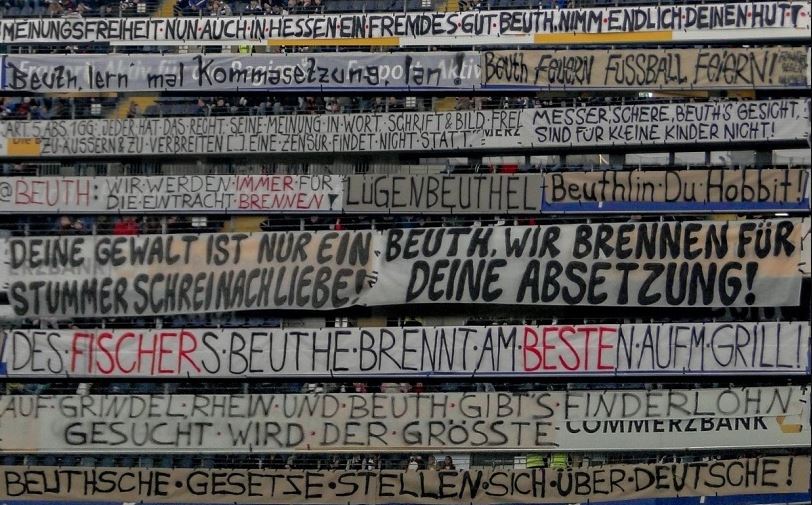 MEINUNGSFREIHEIT·NUN AUCH IN HESSEN EIN FREMDES GUT·BEUTH, NIMM ENDLICH DEINEN HUT!
Beuth, lern' mal Kommasetzung, lan!
Beuth FEUERN FUSSBALL FEIERN!
ART. 5 ABS. 1 GG: „JEDER HAT DAS RECHT, SEINE MEINUNG IN WORT, SCHRIFT & BILD FREI
ZU ÄUSSERN & ZU VERBREITEN [...]. EINE ZENSUR FINDET NICHT STATT."
MESSER, SCHERE, BEUTH'S GESICHT,
SIND FÜR KLEINE KINDER NICHT!
@BEUTH: WIR WERDEN IMMER FÜR
DIE EINTRACHT BRENNEN
LÜGENBEUTHEL
Beuthlin·Du·Hobbit!
DEINE GEWALT IST NUR EIN
STUMMER SCHREI NACH LIEBE!
BEUTH, WIR BRENNEN FÜR
DEINE ABSETZUNG!
DES·FISCHERS·BEUTHE·BRENNT·AM·BESTEN·AUFM·GRILL!
AUF·GRINDEL·RHEIN·UND·BEUTH·GIBT'S·FINDERLOHN
GESUCHT·WIRD·DER·GRÖSSTE
COMMERZBANK
BEUTHSCHE·GESETZE·STELLEN·SICH·ÜBER·DEUTSCHE!